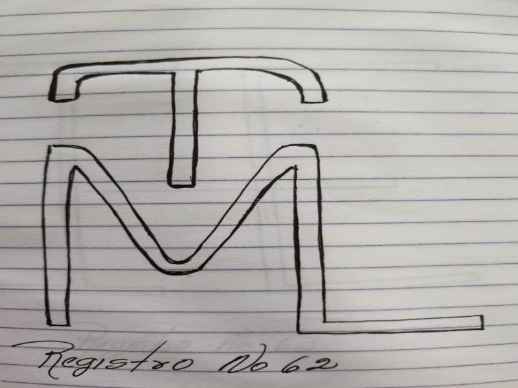 T
ML
Registro No 62